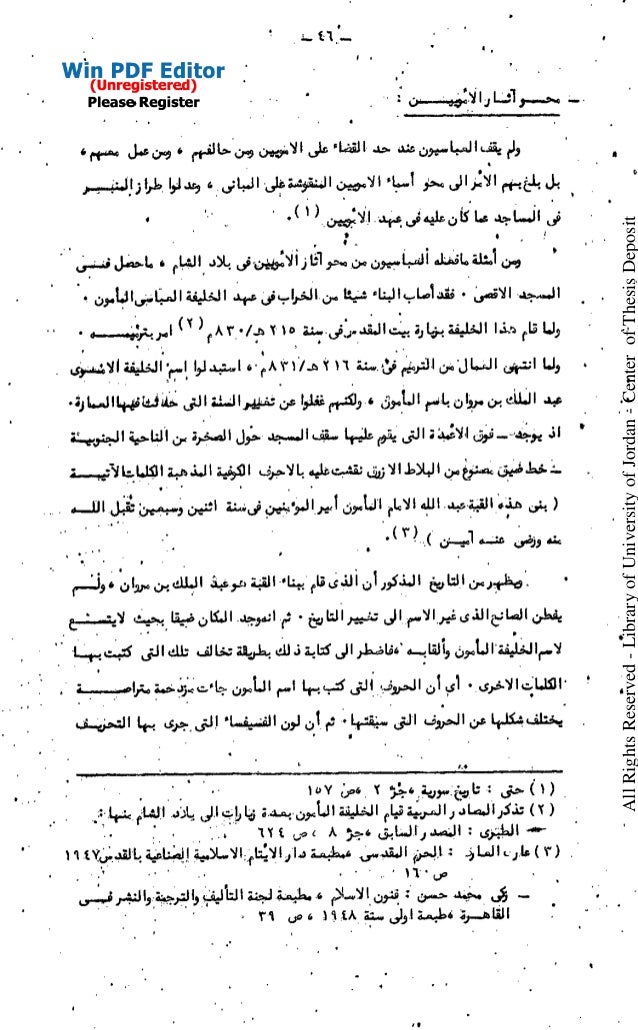 — ٤٦ —
Win PDF Editor
(Unregistered)
Please Register
— محو آثار الامويين :
ولم يقف العباسيون عند حد القضاء على الامويين ومن حالفهم ، ومن عمل معهم ،
بل بلغ بهم الأمر الى محو أسماء الامويين المنقوشة على المبانى ، وعدلوا طراز المنبر
فى المساجد عما كان عليه فى عهد الامويين (١) .
ومن أمثلة مافعله العباسيون من محو آثار الأمويين فى بلاد الشام ، ماحصل فى
المسجد الاقصى . فقد أصاب البناء شيئا من الخراب فى عهد الخليفة العباسى المأمون .
ولما قام هذا الخليفة بزيارة بيت المقدس فى سنة ٢١٥ هـ/٨٣٠م (٢) امر بترميمه .
ولما انتهى العمال من الترميم فى سنة ٢١٦ هـ/٨٣١م ، استبدلوا اسم الخليفة الاموى
عبد الملك بن مروان باسم المأمون ، ولكنهم غفلوا عن تغيير السنة التى حدثت فيها العمارة .
اذ يوجد — فوق الاعمدة التى يقوم عليها سقف المسجد حول الصخرة من الناحية الجنوبية
— خط ضيق مصنوع من البلاط الازرق نقشت عليه بالاحرف الكوفية المذهبة الكلمات الآتية
( بنى هذه القبة عبد الله الامام المأمون أمير المؤمنين فى سنة اثنين وسبعين تقبل الله
منه ورضى عنه آمين ) (٣) .
ويظهر من التاريخ المذكور أن الذى قام ببناء القبة هو عبد الملك بن مروان ، ولم
يفطن الصانع الذى غير الاسم الى تغيير التاريخ . ثم انه وجد المكان ضيقا بحيث لا يتسع
لاسم الخليفة المأمون وألقابه ، فاضطر الى كتابة ذلك بطريقة تخالف تلك التى كتبت بها
الكلمات الاخرى . أي أن الحروف التى كتب بها اسم المأمون جاءت مزدحمة متراصة
يختلف شكلها عن الحروف التى سبقتها . ثم أن لون الفسيفساء التى جرى بها التحريف
(١) حتى : تاريخ سورية ، جـ ٢ ، ص ١٥٧
(٢) تذكر المصادر العربية قيام الخليفة المأمون بعدة زيارات الى بلاد الشام منها :
— الطبرى : المصدر السابق ، جـ ٨ ، ص ٦٢٤
(٣) عارف العارف : الحرم القدسى ، مطبعة دار الأيتام الاسلامية الصناعية بالقدس ١٩٤٧
ص ١٦٠
— زكى محمد حسن : فنون الاسلام ، مطبعة لجنة التأليف والترجمة والنشر فى
القاهرة ، طبعة اولى سنة ١٩٤٨ ، ص ٣٩
All Rights Reserved - Library of University of Jordan - Center of Thesis Deposit